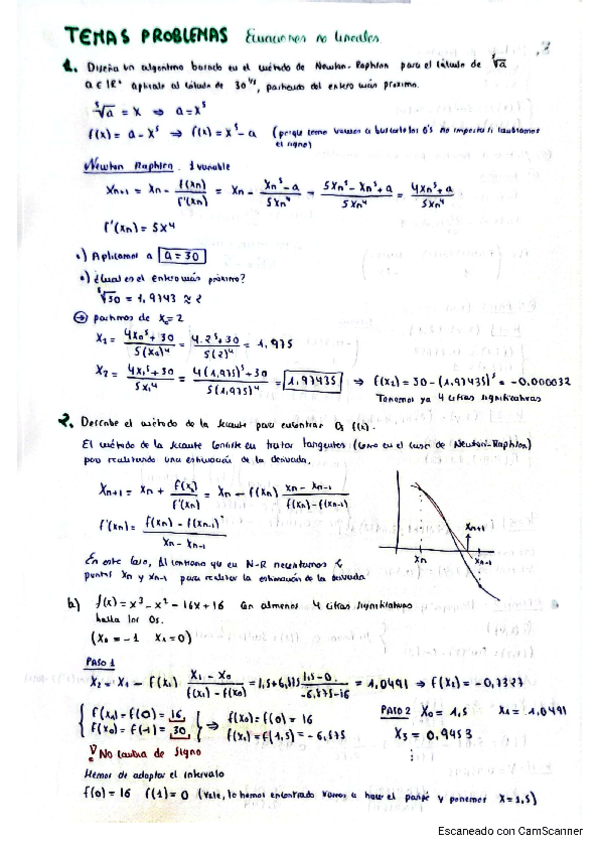 TEMAS PROBLEMAS Ecuaciones no lineales
1. Diseña un algoritmo basado en el método de Newton-Raphson para el cálculo de ⁵√a
a ∈ ℝ⁺ aplícalo al cálculo de 30^1/5, partiendo del entero más próximo.
⁵√a = x ⇒ a = x⁵
f(x) = a - x⁵ ⇒ f(x) = x⁵ - a (porque como vamos a buscarle los 0's no importa si cambiamos
el signo)
Newton Raphson. 1 variable
Xn+1 = Xn - f(xn)/f'(xn) = Xn - (Xn⁵ - a)/5Xn⁴ = (5Xn⁵ - Xn⁵ + a)/5Xn⁴ = (4Xn⁵ + a)/5Xn⁴
f'(xn) = 5x⁴
Aplicamos a a = 30
¿Cual es el entero más próximo?
⁵√30 = 1,9743 ≈ 2
partimos de X₀ = 2
X₁ = (4X₀⁵ + 30)/5(X₀)⁴ = (4·2⁵ + 30)/5(2)⁴ = 1,975
X₂ = (4X₁⁵ + 30)/5X₁⁴ = (4(1,975)⁵ + 30)/5(1,975)⁴ = 1,97435 ⇒ f(x₂) = 30 - (1,97435)⁵ = -0,000032
Tenemos ya 4 cifras significativas
2. Describe el método de la secante para encontrar 0s f(x).
El método de la secante consiste en trazar tangentes (como en el caso de Newton-Raphson)
pero realizando una estimación de la derivada.
Xn+1 = Xn + f(xn)/f'(xn) = Xn - f(xn) (xn - xn-1)/(f(xn) - f(xn-1))
f'(xn) = (f(xn) - f(xn-1))/(Xn - Xn-1)
Xn Xn+1 Xn-1
En este caso, al contrario que en N-R necesitamos 2
puntos Xn y Xn-1 para realizar la estimación de la derivada
b) f(x) = x³ - x² - 16x + 16 con almenos 4 cifras significativas
halla los 0s.
(X₀ = -1 X₁ = 0)
PASO 1
X₂ = X₁ - f(x₁) (X₁ - X₀)/(f(x₁) - f(x₀)) = 1,5 + 6,875 (1,5 - 0)/(-6,875 - 16) = 1,0491 ⇒ f(x₂) = -0,7327
f(x₁) = f(0) = 16
f(x₀) = f(-1) = 30 ⇒ f(x₀) = f(0) = 16
f(x₁) = f(1,5) = -6,875
PASO 2 X₀ = 1,5 X₁ = 1,0491
X₃ = 0,9453
! No cambia de signo
Hemos de adoptar el intervalo
f(0) = 16 f(1) = 0 (vale, lo hemos encontrado vamos a hacer el paripé y ponemos X = 1,5)
Escaneado con CamScanner